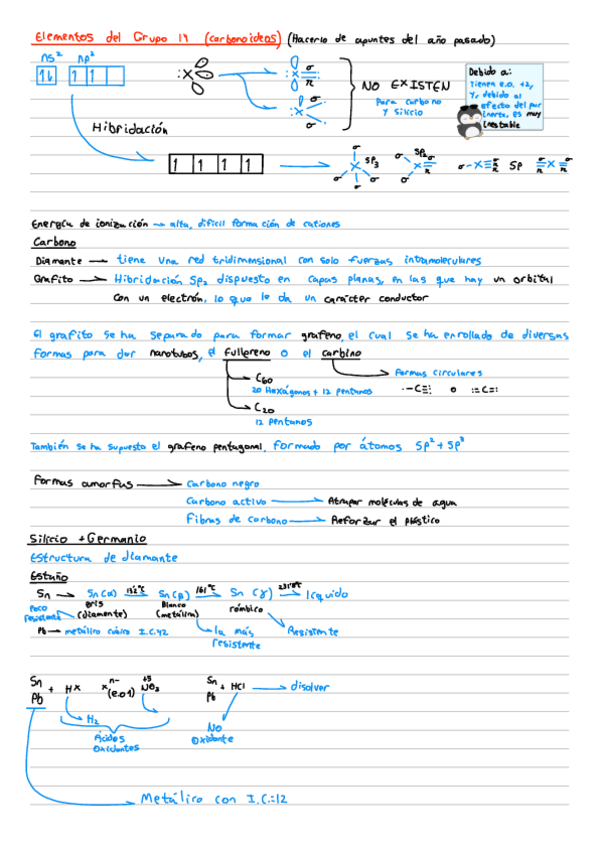 Elementos del Grupo 14 (carbonoideos) (Hacerlo de apuntes del año pasado)
ns² np²
:X
:X σ π
:X σ σ
NO EXISTEN
Para carbono
y silicio
Debido a:
Tienen e.o. +2,
y, debido al
efecto del par
inerte, es muy
inestable
Hibridación
σ σ X σ σ sp3
σ X sp2 σ π
σ-X≡ σ π π sp
σ π =X= σ π
Energía de ionización → alta, difícil formación de cationes
Carbono
Diamante → tiene una red tridimensional con solo fuerzas intramoleculares
Grafito → Hibridación sp2 dispuesto en capas planas, en las que hay un orbital
con un electrón, lo que le da un carácter conductor
El grafito se ha separado para formar grafeno, el cual se ha enrollado de diversas
formas para dar nanotubos, el fullereno o el carbino
C60
20 Hexágonos + 12 pentanos
C20
12 pentanos
Formas circulares
·-C≡: o :=C=:
También se ha supuesto el grafeno pentagonal, formado por átomos sp² + sp³
Formas amorfas → Carbono negro
Carbono activo → Atrapar moléculas de agua
Fibras de carbono → Reforzar el plástico
Silicio + Germanio
Estructura de diamante
Estaño
Sn → Sn(α) 13'2ºC Sn(β) 161ºC Sn (γ) 231'8ºC líquido
Poco resistente
gris (diamante)
Blanco (metálica)
rómbico
Pb → metálico cúbico I.C.12
la más resistente
Resistente
Sn
Pb + HX xⁿ⁻ (e.o 1) +5 NO3
H2
Ácidos
oxidantes
Sn
Pb + HCl → disolver
No
oxidante
Metálico con I.C.=12